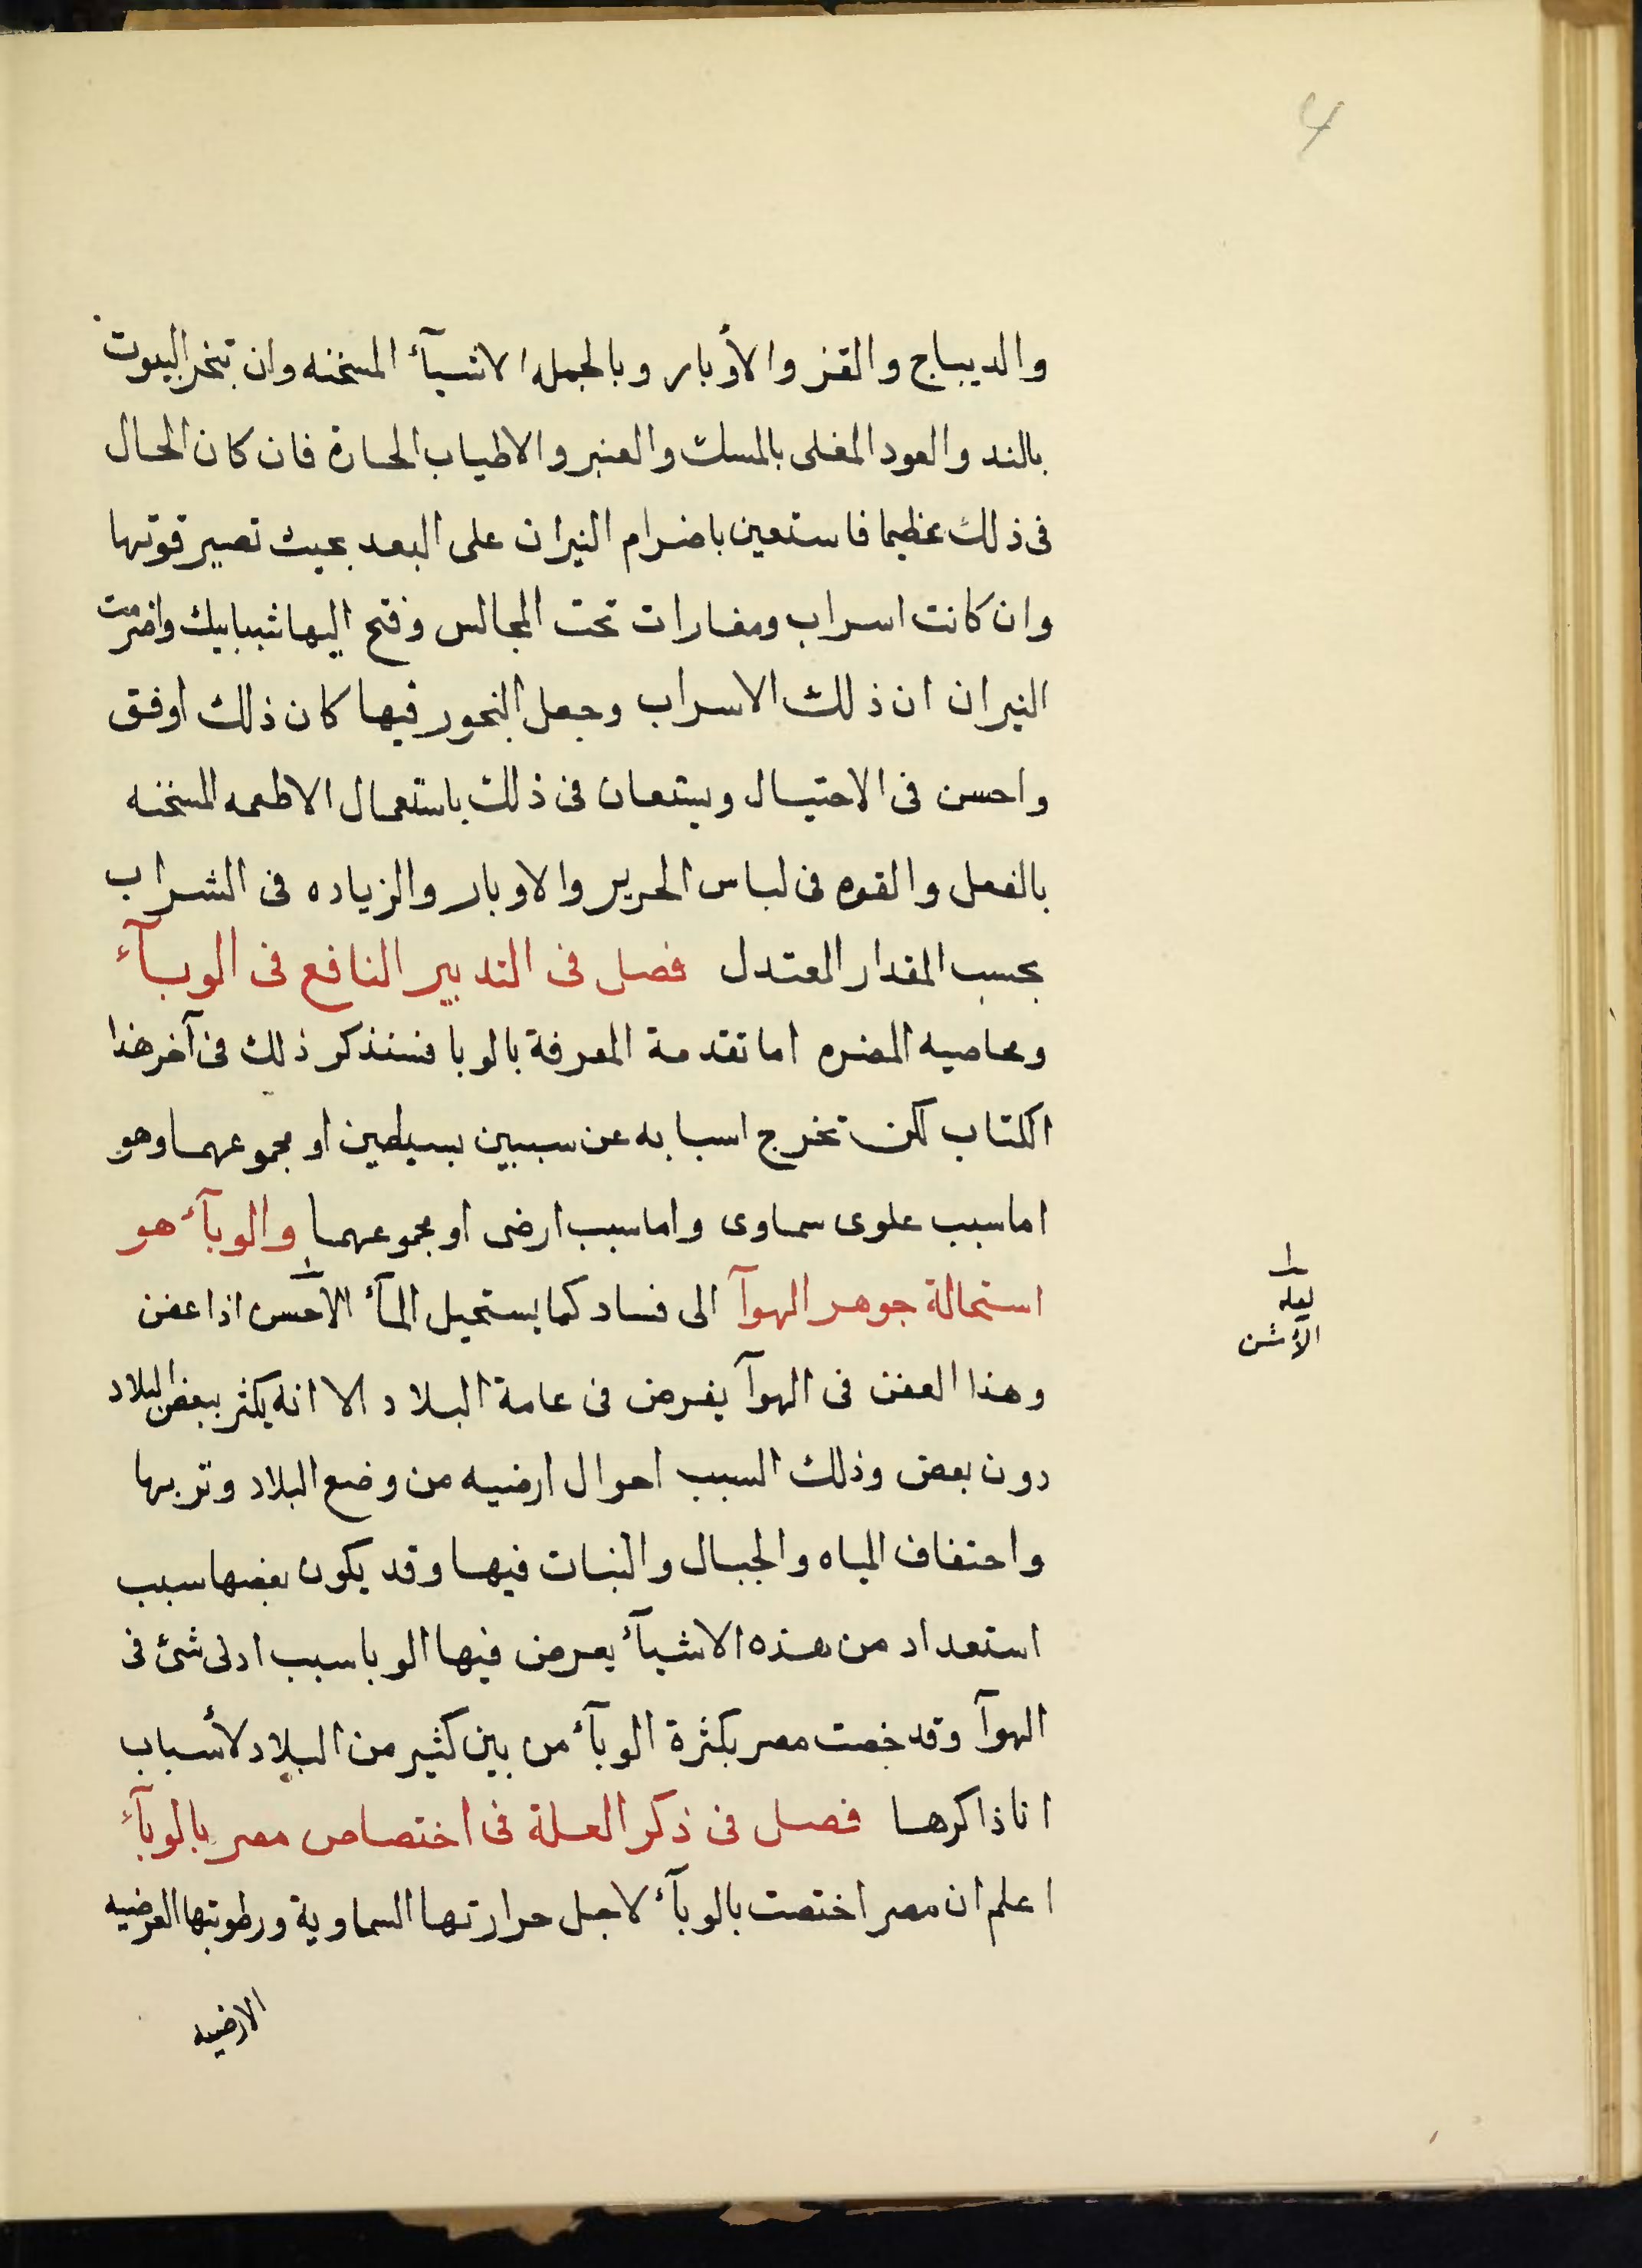 4
والديباج والقز والأوبار وبالجمله الاشيآء المسخنه وان تبخر البيوت
بالند والعود المغلى بالمسك والعنبر والاطياب الحارة فان كان الحال
فى ذلك عظيما فاستعين باضرام النيران على البعد بحيث تصير قوتها
وان كانت اسراب ومغارات تحت المجالس وفتح اليها شبابيك واضرمت
النيران ان ذلك الاسراب وجعل البخور فيها كان ذلك اوفق
واحسن فى الاحتيال ويستعان فى ذلك باستعمال الاطعمه المسخنه
بالفعل والقوه فى لباس الحرير والاوبار والزياده فى الشراب
بحسب المقدار المعتدل فصل فى التدبير النافع فى الوبآء
وعاصيه المضره اما تقدمة المعرفة بالوبا فسنذكر ذلك فى آخر هذا
الكتاب لكن تخرج اسبابه عن سببين بسيطين او مجموعهما وهو
اما سبب علوى سماوى واما سبب ارضى او مجموعهما والوبآء هو
استحالة جوهر الهوآ الى فساد كما يستحيل المآء الآحسن اذا عفن
وهذا العفن فى الهوآ يفرض فى عامة البلاد الا انه يكثر ببعض البلاد
دون بعض وذلك السبب احوال ارضيه من وضع البلاد وتربها
واحتفاف المياه والجبال والنبات فيها وقد يكون بعضها سبب
استعداد من هذه الاشيآء يعرض فيها الوبا سبب ادلى شئ فى
الهوآ وقد خصت مصر بكثرة الوبآء من بين كثير من البلاد لأسباب
انا ذاكرها فصل فى ذكر العلة فى اختصاص مصر بالوبآء
اعلم ان مصر اختصت بالوبآء لاجل حرارتها السماوية ورطوبتها العرضيه
الارضيه
١
ليه
الآشن